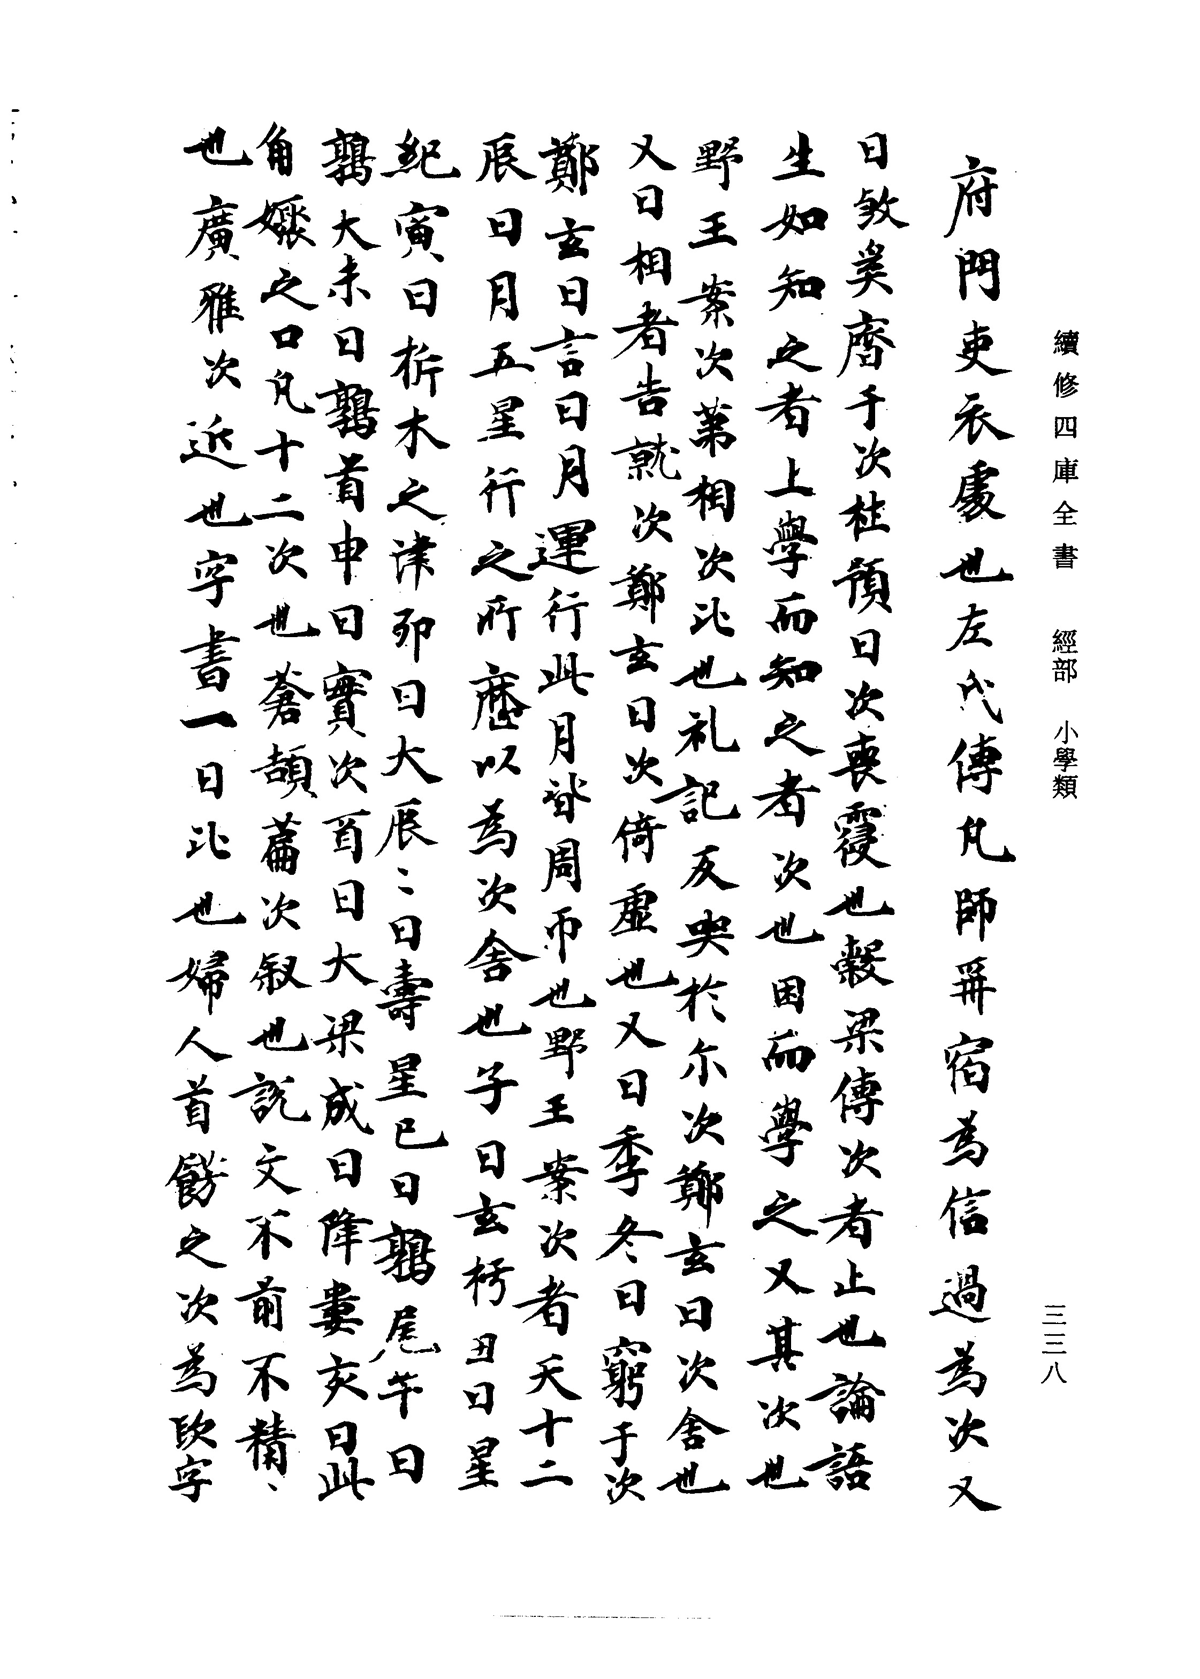 續修四庫全書 經部 小學類
三三八
府門吏衣處也左氏傳凡師再宿為信過為次又
曰敓奚齊于次杜預曰次喪寢也穀梁傳次者止也論語
生如知之者上學而知之者次也困而學之又其次也
野王案次第相次比也礼記反哭於尓次鄭玄曰次舍也
又曰相者告就次鄭玄曰次倚虛也又曰季冬日窮于次
鄭玄曰言日月運行此月皆周帀也野王案次者天十二
辰日月五星行之所歷以為次舍也子曰玄枵丑曰星
紀寅曰析木之津卯曰大辰〻曰壽星巳曰鶉尾午曰
鶉大未曰鶉首申曰實次首曰大梁戌曰降婁亥曰此
角娵之口凡十二次也蒼頡篇次叙也說文不前不精〻
也廣雅次近也字書一曰比也婦人首餝之次為䯸字